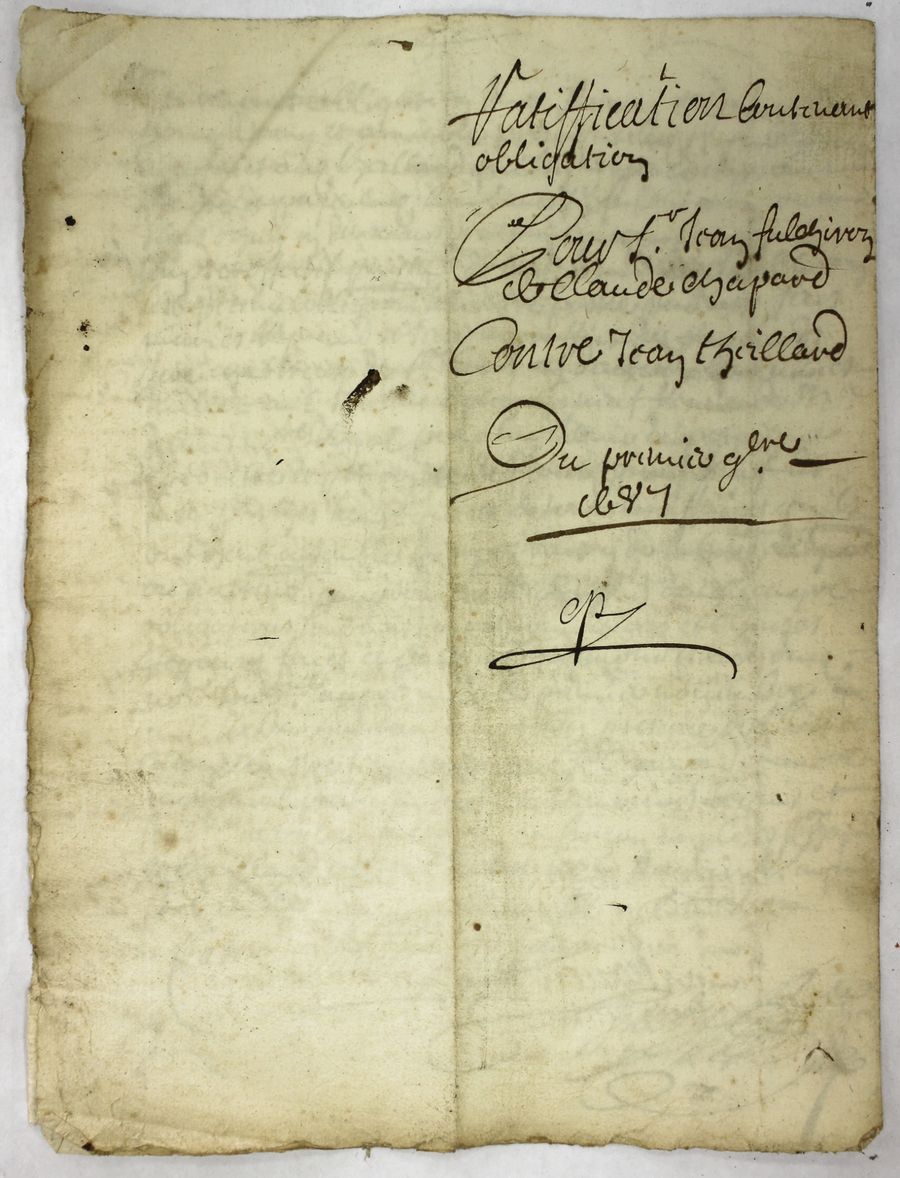 Ratiffication Contenant
obligation
Pour Sr. Jean fulchiron
Claude Chapard
Contre Jean theillard
Du premier 9bre
87